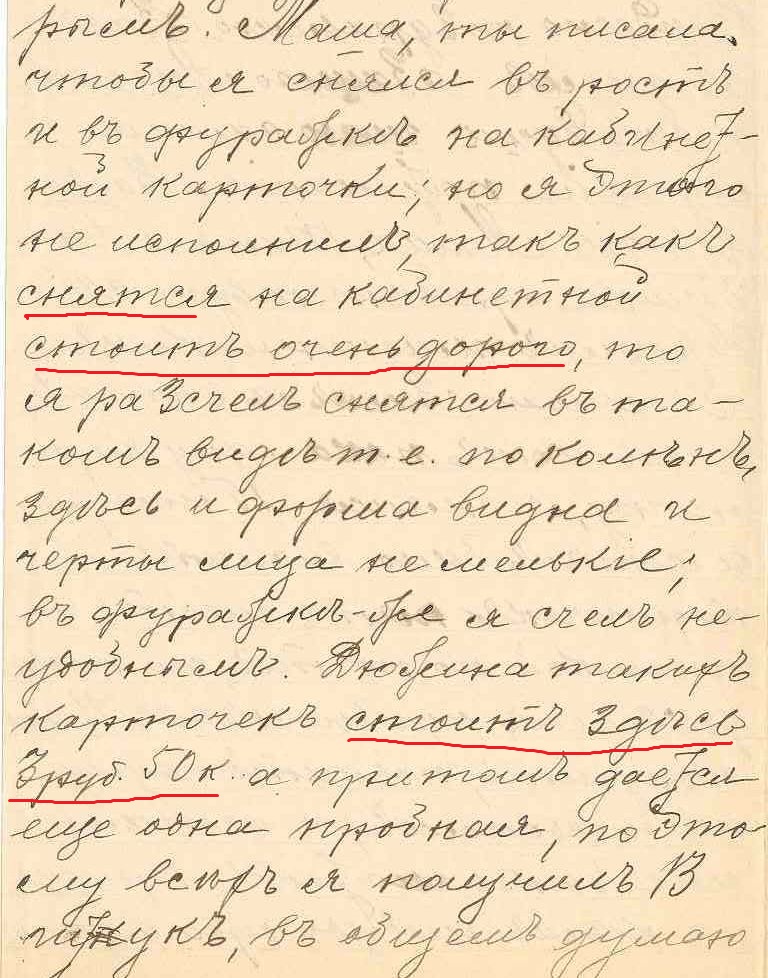 рымъ. Маша, ты писала,
чтобы я снялся въ ростъ
и въ фуражкѣ на кабинет-
ной карточки; но я этого
не исполнилъ, такъ какъ
снятся на кабинетной
стоитъ очень дорого, то
я разсчелъ снятся въ та-
комъ видѣ т.е. по колѣнѣ,
здѣсь и форма видна и
черты лица не мелькіе;
въ фуражкѣ-же я счелъ не-
удобнымъ. Дюжина такихъ
карточекъ стоитъ здѣсь
3 руб. 50 к. а притомъ дается
еще одна пробная, по это-
му всѣхъ я получилъ 13
штукъ, въ общемъ думаю